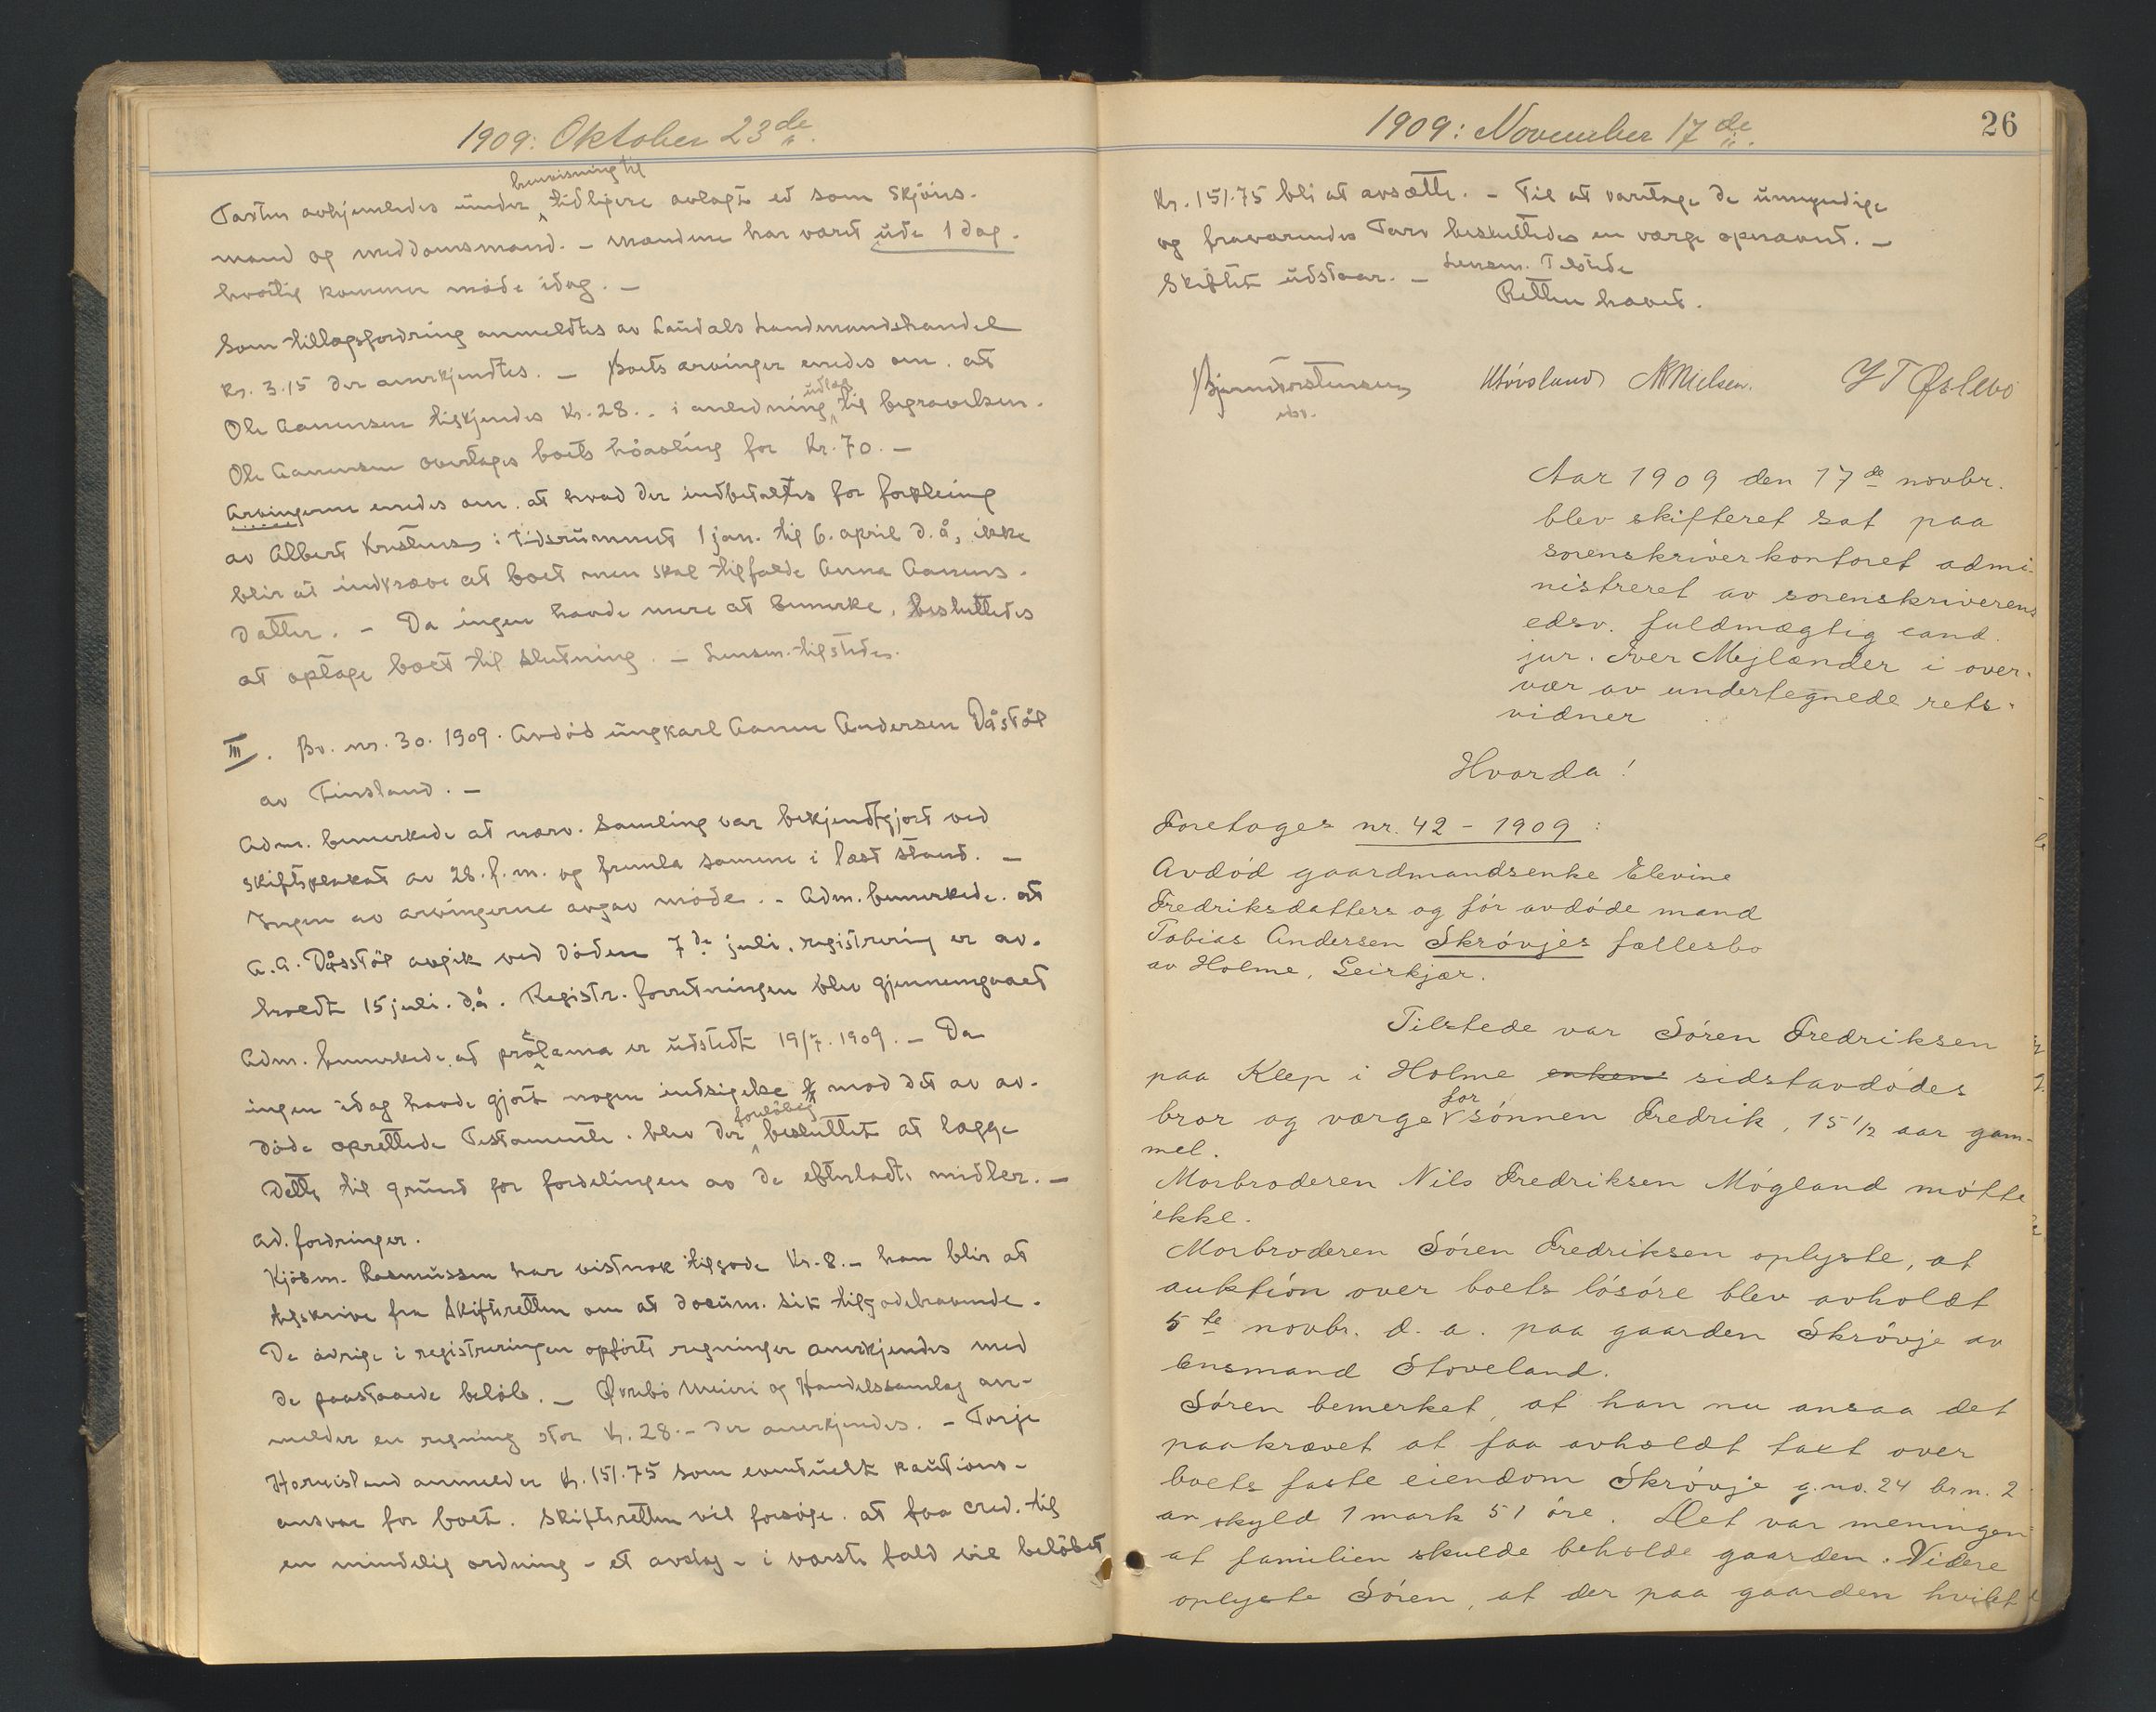 1909: Oktober 23de.
henvisning til
Taxten avhjemledes under tidligere avlagt ed som skjöns-
mand og meddomsmand. - Mændene har været ude 1 dag.
hvortil kommer møde idag. -
Som tillægsfordring anmeldtes av Laudals Landmandshandel
Kr. 3.15 der anerkjendtes. - Boets arvinger enedes om, at
udlæg
Ole Aanensen tilkjendes Kr. 28.- i anledning til begravelsen.
Ole Aanensen overtages boets höavling for Kr. 70.-
Arvingerne enedes om, at hvad der indbetaltes for forpleining
av Albert i tidsrummet 1 jan. til 6. april d. å, ikke
blir at indkræve at boet men skal tilfalde Anna Aanens-
datter. - Da ingen havde mere at bemerke, besluttedes
at optage boet til slutning. - Lensm. tilstede.
III. Bo. nr. 30. 1909. Avdöd ungkarl Aanen Andersen Dåstöl
av Finsland. -
Adm. bemerkede at nærv. samling var bekjendtgjort ved
skifteplakat av 28. f. m. og fremla samme i læst stand. -
Ingen av arvingerne avgav møde. - Adm. bemerkede, at
A. A. Dåsstöl avgik ved döden 7de juli, registrering er av-
holdt 15 juli. d.å. Registr. forretningen blev gjennemgaaet
Adm. bemerkede, at proklama er udstedt 19/7. 1909. - Da
ingen idag havde gjort nogen indsigelse mod det av av-
foreløbig
døde oprettede Testamente, blev der besluttet at lægge
dette til grund for fordelingen av de efterladte midler. -
Ad. fordringer.
Kjöbm. Rasmussen har vistnok tilgode Kr. 8.- han blir at
tilskrive fra Skifteretten om at docum. sit tilgodehavende.
De övrige i registreringen opförte regninger anerkjendes med
de paastaaede belöb. - Øvrebö Meieri og Handelssamlag an-
melder en regning stor Kr. 28.- der anerkjendes. - Terje
anmelder Kr. 151.75 som eventuelt kautions-
ansvar for boet. Skifteretten vil forsöge, at faa cred. til
en mindelig ordning - et avslag - i værste fald vil belöbet
1909: November 17de.
26
Kr. 151.75 bli at avsætte. - Til at varetage de umyndige
og fraværendes Tarv besluttedes en værge opnævnt. -
Skiftet udstaar. - Lensm. Tilstede
Retten hævet.
N Nielsen. Y T Øslebö
edsv.
Aar 1909 den 17de novbr.
blev skifteret sat paa
sorenskriverkontoret admi-
nistreret av sorenskriverens
edsv. fuldmægtig cand.
jur. Iver Mejlænder i over-
vær av undertegnede rets-
vidner
Hvorda!
Foretages nr. 42 - 1909:
Avdöd gaardmandsenke Elevine
Fredriksdatters og för avdöde mand
Tobias Andersen Skrövjes fællesbo
av Holme, Leirkjær.
Tilstede var Sören Fredriksen
paa Klep i Holme enkens sidstavdödes
for
bror og værge sönnen Fredrik, 15 1/12 aar gam-
mel.
Morbroderen Nils Fredriksen Mögland mötte
ikke.
Morbroderen Sören Fredriksen oplyste, at
auktion over boets lösöre blev avholdt
5te novbr. d. a. paa gaarden Skrövje av
lensmand Stoveland.
Sören bemerket, at han nu ansaa det
paakrævet at faa avholdt taxt over
boets faste eiendom Skrövje g.no. 24 br n. 2
av skyld 1 mark 51 öre. Det var meningen
at familien skulde beholde gaarden. Videre
oplyste Sören, at der paa gaarden hvilet